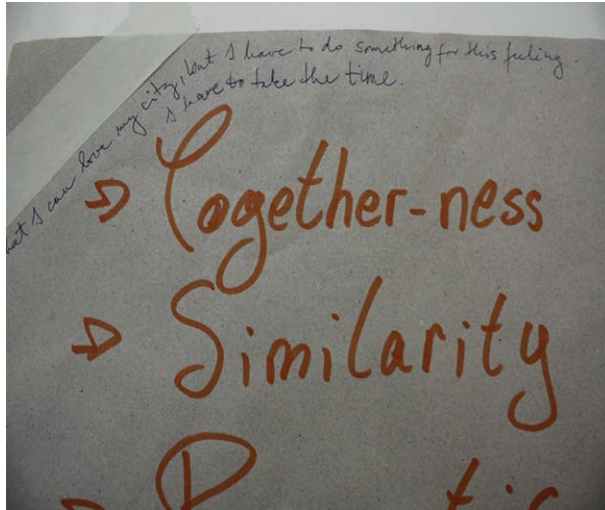 I can love my city, but I have to do something for this feeling.
I have to take the time.
Together-ness
Similarity